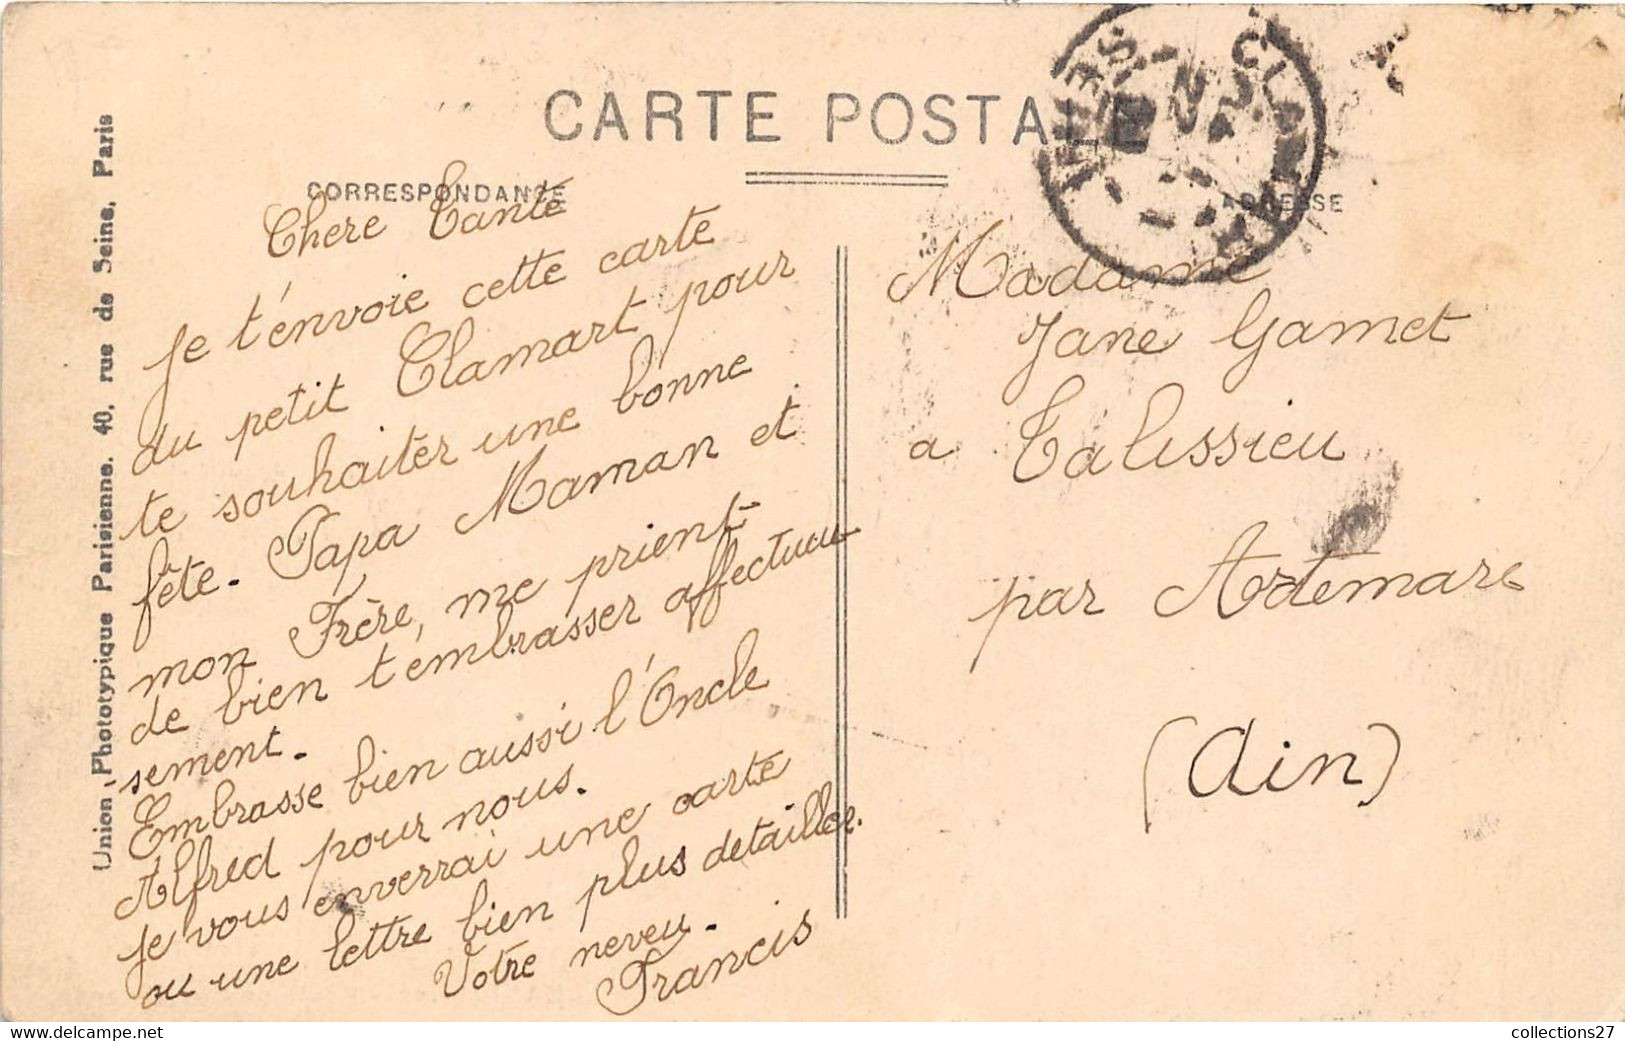 CARTE POSTALE
CORRESPONDANCE
ADRESSE
Chere Tante
je t'envoie cette carte
du petit Clamart pour
te souhaiter une bonne
fête. Papa Maman et
mon Frère, me prient
de bien t'embrasser affectueu
sement.
Embrasse bien aussi l'Oncle
Alfred pour nous.
je vous enverrai une carte
ou une lettre bien plus detailler.
Votre neveu.
Francis
Madame
Jane Gamet
a Talissieu
par Artemare
(Ain)
Union Phototypique Parisienne. 40, rue de Seine, Paris
CLAMART
SEINE
collections27